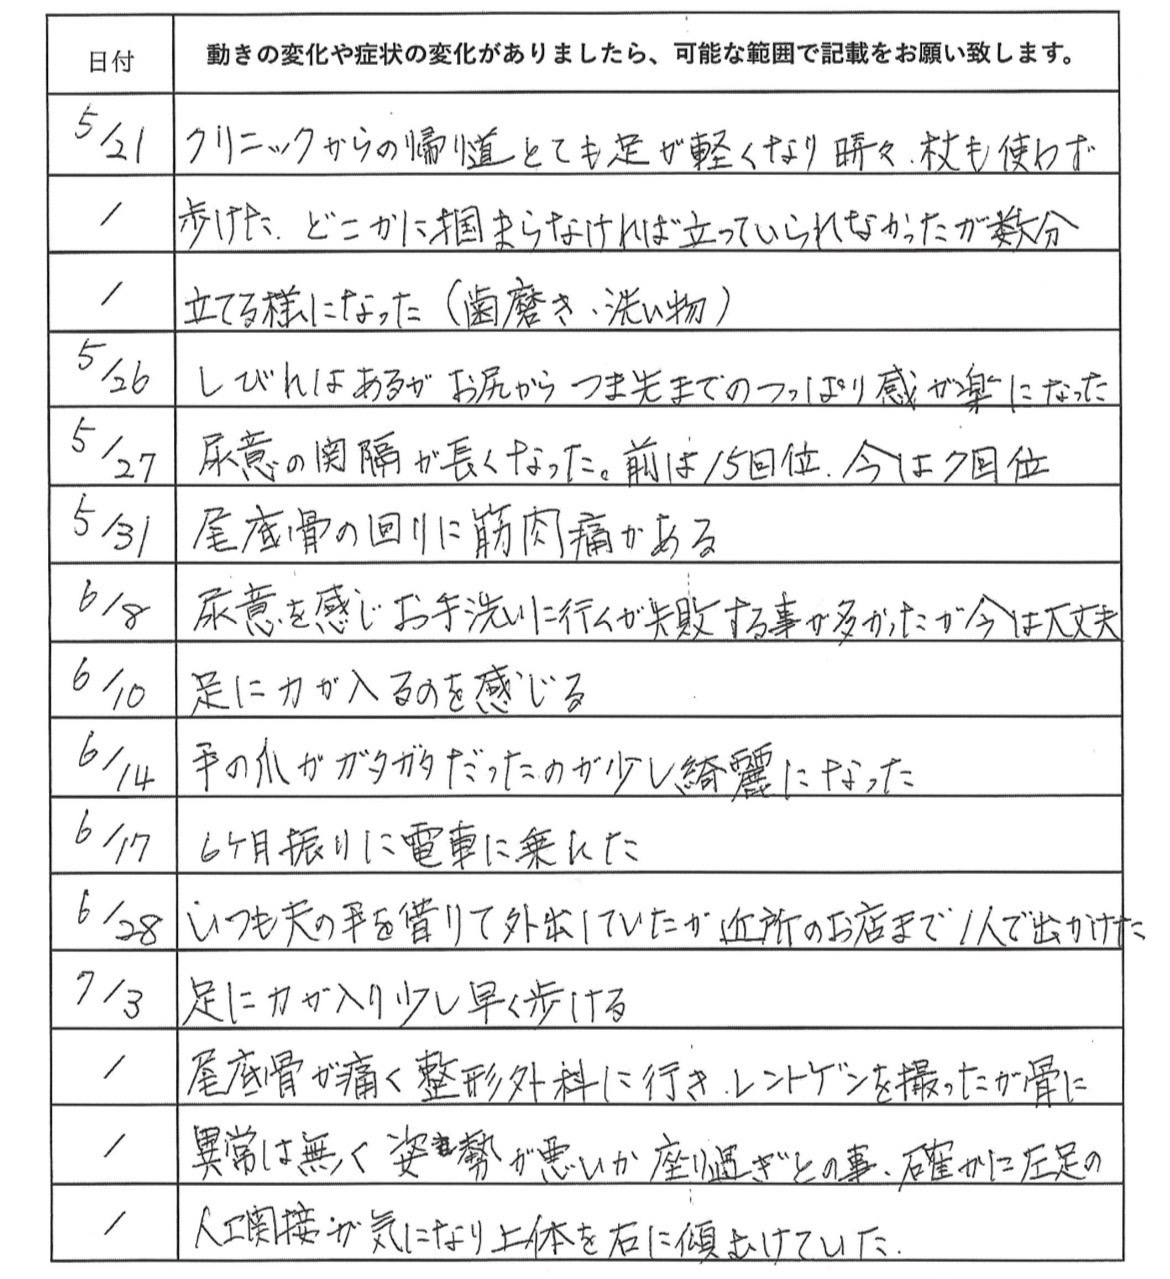 日付 動きの変化や症状の変化がありましたら、可能な範囲で記載をお願い致します。
5/21 クリニックからの帰り道とても足が軽くなり時々、杖も使わず
/ 歩けた、どこかに掴まらなければ立っていられなかったが数分
/ 立てる様になった（歯磨き、洗い物）
5/26 しびれはあるがお尻からつま先までのつっぱり感が楽になった
5/27 尿意の間隔が長くなった。前は15回位、今は7回位
5/31 尾底骨の回りに筋肉痛がある
6/8 尿意を感じお手洗いに行くが失敗する事が多かったが今は大丈夫
6/10 足に力が入るのを感じる
6/14 手の爪がガタガタだったのが少し綺麗になった
6/17 6ヶ月振りに電車に乗れた
6/28 いつも夫の手を借りて外出していたが近所のお店まで1人で出かけた
7/3 足に力が入り少し早く歩ける
/ 尾底骨が痛く整形外科に行き、レントゲンを撮ったが骨に
/ 異常は無く姿勢が悪いか座り過ぎとの事、確かに左足の
/ 人工関接が気になり上体を右に傾むけていた、